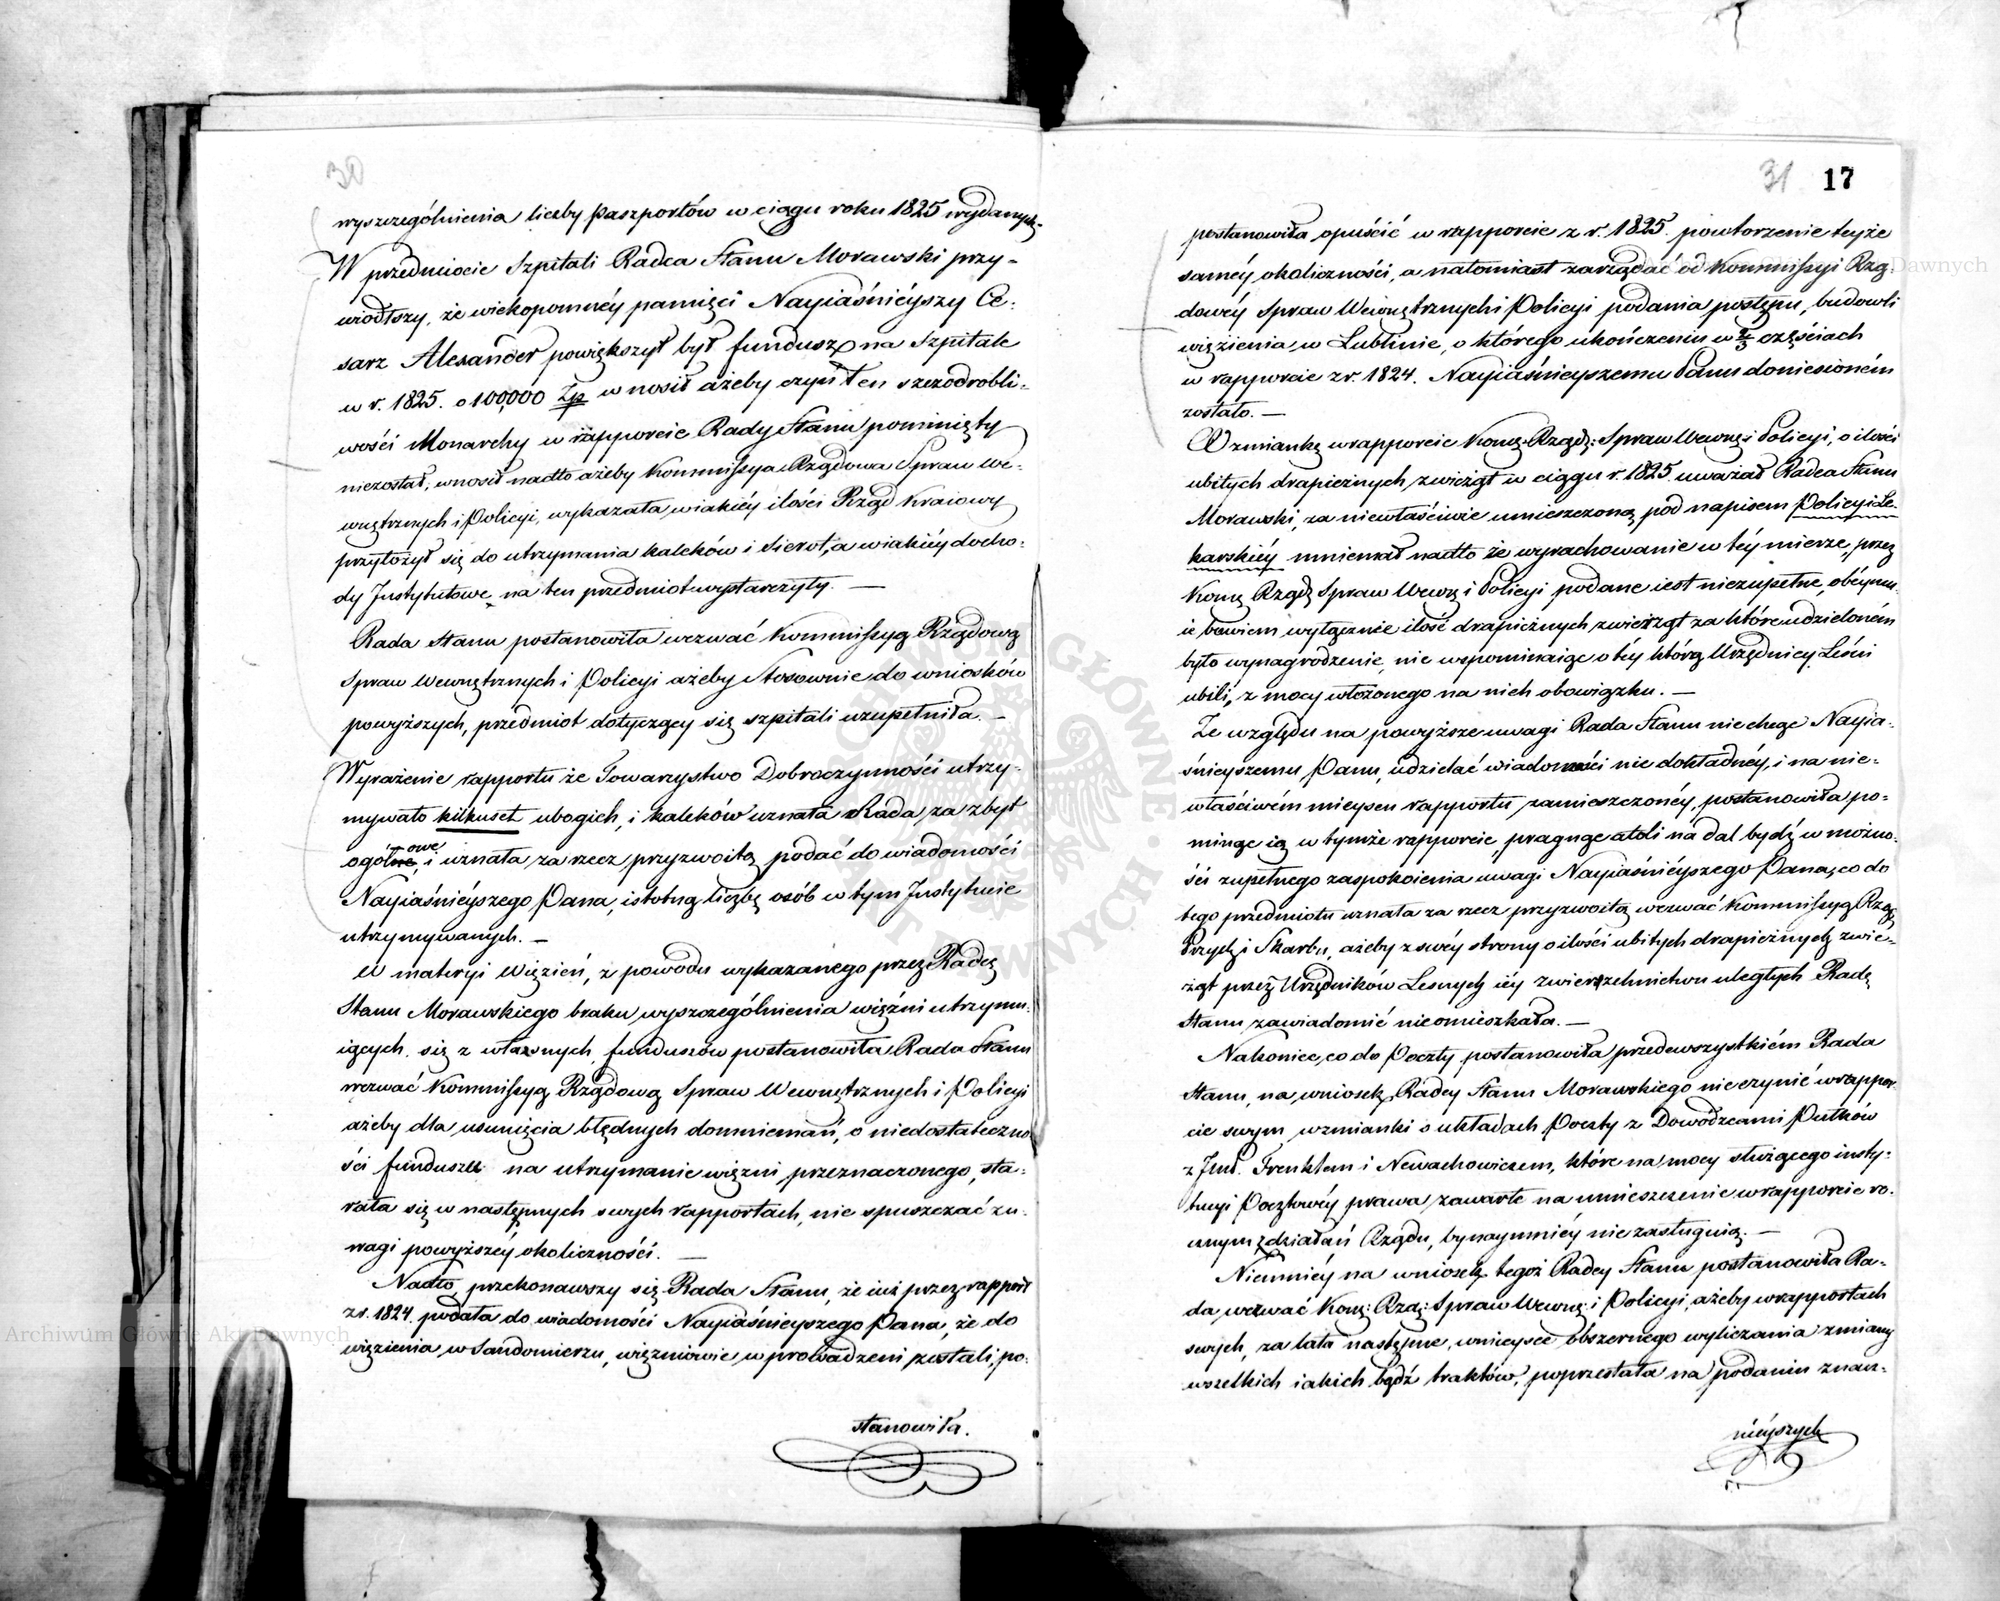 30
wyszczególnienia liczby paszportów w ciągu roku 1825 wydanych.
W przedmiocie Szpitali Radca Stanu Morawski przy-
wiodłszy, że wiekopomnéy pamięci Nayiaśnieyszy Ce-
sarz Alexander powiększył był fundusz na Szpitale
w r. 1825. o 100,000 Złp wnosił ażeby czyn ten szczodrobli-
wości Monarchy w rapporcie Rady Stanu pominięty
niezostał, wnosił nadto ażeby Kommissya Rządowa Spraw We-
wnętrznych i Policyi, wykazała wiakiéy ilości Rząd Kraiowy
przyłożył się do utrzymania kaleków i Sierot, a wiakiéy docho-
dy Instytutowe na ten przedmiot wystarczyły. —
Rada Stanu postanowiła wezwać Kommissyą Rządową
Spraw Wewnętrznych i Policyi ażeby Stosownie do wniosków
powyższych, przedmiot dotyczący się szpitali uzupełniła. —
Wyrażenie rapportu że Towarzystwo Dobroczynności utrzy-
mywało kilkuset ubogich, i kaleków uznała Rada, za zbyt
ogólne owe, i uznała za rzecz przyzwoitą podać do wiadomości
Nayiaśnieyszego Pana, istotną liczbę osób w tym Instytucie
utrzymywanych. —
W materyi Więzień, z powodu wykazanego przez Radcę
Stanu Morawskiego braku wyszczególnienia więźni utrzymu-
iących się z własnych funduszów postanowiła Rada Stanu
wezwać Kommissyą Rządową Spraw Wewnętrznych i Policyi
ażeby dla usunięcia błędnych domniemań, o niedostateczno-
ści funduszu na utrzymanie więzni przeznaczonego, sta-
rała się w następnych swych rapportach, nie spuszczać z u-
wagi powyższéy okoliczności. —
Nadto, przekonawszy się Rada Stanu, że iuż przez rapport
z r. 1824. podała do wiadomości Nayiaśnieyszego Pana, że do
więzienia w Sandomierzu, więzniowie wprowadzeni zostali, po-
stanowiła.
31 17
postanowiła opuścić w rapporcie z r. 1825. powtorzenie teyże
saméy okoliczności, a natomiast zażądać od Kommissyi Rzą-
dowéy Spraw Wewnętrznych i Policyi podania postępu, budowli
więzienia w Lublinie, o którego ukończeniu w 2/3 częściach
w rapporcie z r. 1824. Nayiaśnieyszemu Panu doniesioném
zostało. —
Wzmiankę w rapporcie Komę: Rządę: Spraw Wewnę: i Policyi, o ilości
ubitych drapieżnych zwierząt w ciągu r. 1825. uważał Radca Stanu
Morawski, za niewłaściwie umieszczoną pod napisem Policyi Le-
karskiéy mniemał nadto że wyrachowanie w téy mierze, przez
Komę Rządę Spraw Wewnę i Policyi podane iest niezupełne, obéymu-
ie bowiem wyłącznie ilość drapieżnych zwierząt za które udzieloném
było wynagrodzenie, nie wspominaiąc o téy którą Urzędnicy Leśni
ubili, z mocy włożonego na nich obowiązku. —
Ze względu na powyższe uwagi Rada Stanu nie chcąc Nayia-
śnieyszemu Panu, udzielać wiadomości nie dokładnéy, i na nie-
właściwém mieyscu rapportu zamieszczonéy, postanowiła po-
minąć ią w tymże rapporcie, pragnąc atoli na dal bydź w możno-
ści zupełnego zaspokoienia uwagi Nayiaśnieyszego Pana, co do
tego przedmiotu uznała za rzecz przyzwoitą wezwać Kommissyą Rząę
Przych i Skarbu, ażeby z swéy strony o ilości ubitych drapieżnych zwie-
rząt przez Urzędników Lesnych iéy zwierzchnictwu uległych Radę
Stanu zawiadomić nieomieszkała. —
Nakoniec, co do Poczty postanowiła przedewszystkiém Rada
Stanu, na wniosek Radcy Stanu Morawskiego nie czynić w rappor-
cie swym wzmianki o układach Poczty z Dowodzcami Pułków
z Jmć. Frenklem i Newachowiczem, które na mocy służącego insty-
tucyi Pocztowéy prawa zawarte na umieszczenie w rapporcie ro-
cznym z działań Rządu, bynaymniéy nie zasługuią. —
Niemniéy na wniosek tegoż Radcy Stanu postanowiła Ra-
da wezwać Komę: Rzą: Spraw Wewnę: i Policyi, ażeby w rapportach
swych, za lata następne, wmieysce obszernego wyliczania zmiany
wszelkich iakich bądź traktów, poprzestała na podaniu znacz-
nieyszych